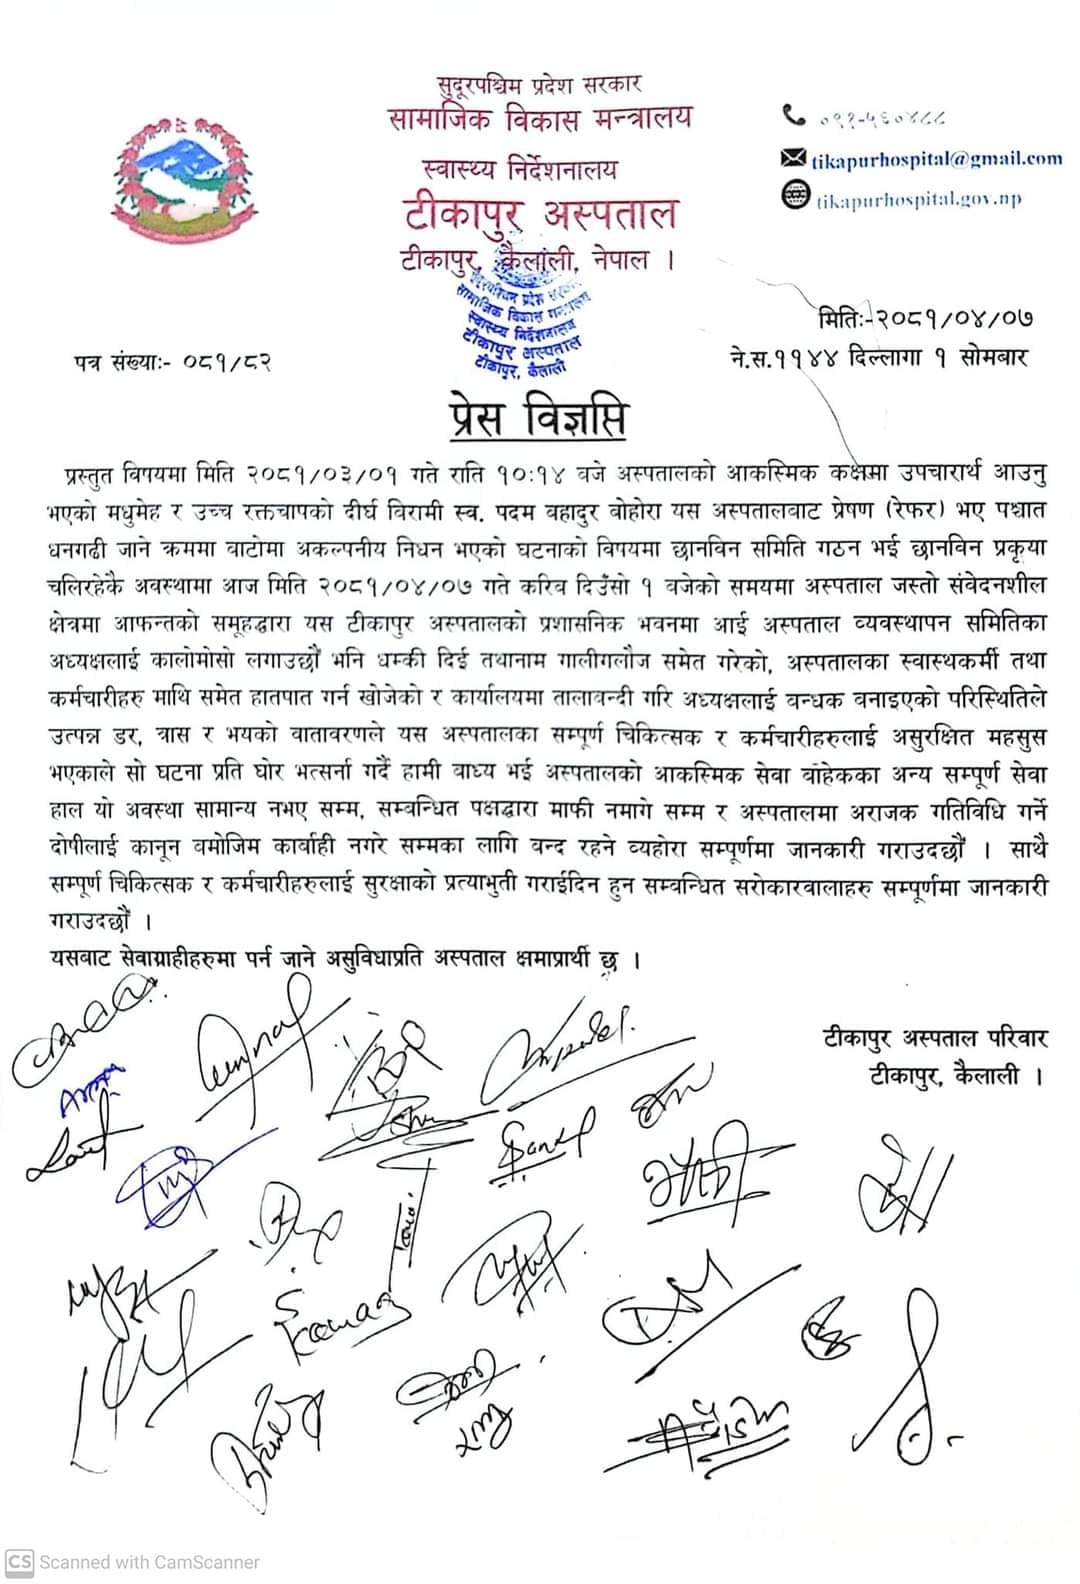 सुदूरपश्चिम प्रदेश सरकार
सामाजिक विकास मन्त्रालय
स्वास्थ्य निर्देशनालय
टीकापुर अस्पताल
टीकापुर, कैलाली, नेपाल ।
०९१-५६०४८८
tikapurhospital@gmail.com
tikapurhospital.gov.np
सुदूरपश्चिम प्रदेश सरकार
सामाजिक विकास मन्त्रालय
स्वास्थ्य निर्देशनालय
टीकापुर अस्पताल
टीकापुर, कैलाली
मितिः-२०८१/०४/०७
पत्र संख्याः- ०८१/८२
ने.स.११४४ दिल्लागा १ सोमबार
प्रेस विज्ञप्ति
प्रस्तुत विषयमा मिति २०८१/०३/०१ गते राति १०:१४ वजे अस्पतालको आकस्मिक कक्षमा उपचारार्थ आउनु
भएको मधुमेह र उच्च रक्तचापको दीर्घ विरामी स्व. पदम वहादुर वोहोरा यस अस्पतालबाट प्रेषण (रेफर) भए पश्चात
धनगढी जाने क्रममा वाटोमा अकल्पनीय निधन भएको घटनाको विषयमा छानविन समिति गठन भई छानविन प्रकृया
चलिरहेकै अवस्थामा आज मिति २०८१/०४/०७ गते करिव दिउँसो १ बजेको समयमा अस्पताल जस्तो संवेदनशील
क्षेत्रमा आफन्तको समूहद्वारा यस टीकापुर अस्पतालको प्रशासनिक भवनमा आई अस्पताल व्यवस्थापन समितिका
अध्यक्षलाई कालोमोसो लगाउछौं भनि धम्की दिई तथानाम गालीगलौज समेत गरेको, अस्पतालका स्वास्थकर्मी तथा
कर्मचारीहरु माथि समेत हातपात गर्न खोजेको र कार्यालयमा तालावन्दी गरि अध्यक्षलाई बन्धक वनाइएको परिस्थितिले
उत्पन्न डर, त्रास र भयको वातावरणले यस अस्पतालका सम्पूर्ण चिकित्सक र कर्मचारीहरुलाई असुरक्षित महसुस
भएकाले सो घटना प्रति घोर भत्सर्ना गर्दै हामी वाध्य भई अस्पतालको आकस्मिक सेवा वाहेकका अन्य सम्पूर्ण सेवा
हाल यो अवस्था सामान्य नभए सम्म, सम्बन्धित पक्षद्वारा माफी नमागे सम्म र अस्पतालमा अराजक गतिविधि गर्ने
दोषीलाई कानून वमोजिम कार्बाही नगरे सम्मका लागि वन्द रहने व्यहोरा सम्पूर्णमा जानकारी गराउदछौं । साथै
सम्पूर्ण चिकित्सक र कर्मचारीहरुलाई सुरक्षाको प्रत्याभुती गराईदिन हुन सम्बन्धित सरोकारवालाहरु सम्पूर्णमा जानकारी
गराउदछौं ।
यसबाट सेवाग्राहीहरुमा पर्न जाने असुविधाप्रति अस्पताल क्षमाप्रार्थी छ ।
टीकापुर अस्पताल परिवार
टीकापुर, कैलाली ।
CS Scanned with CamScanner